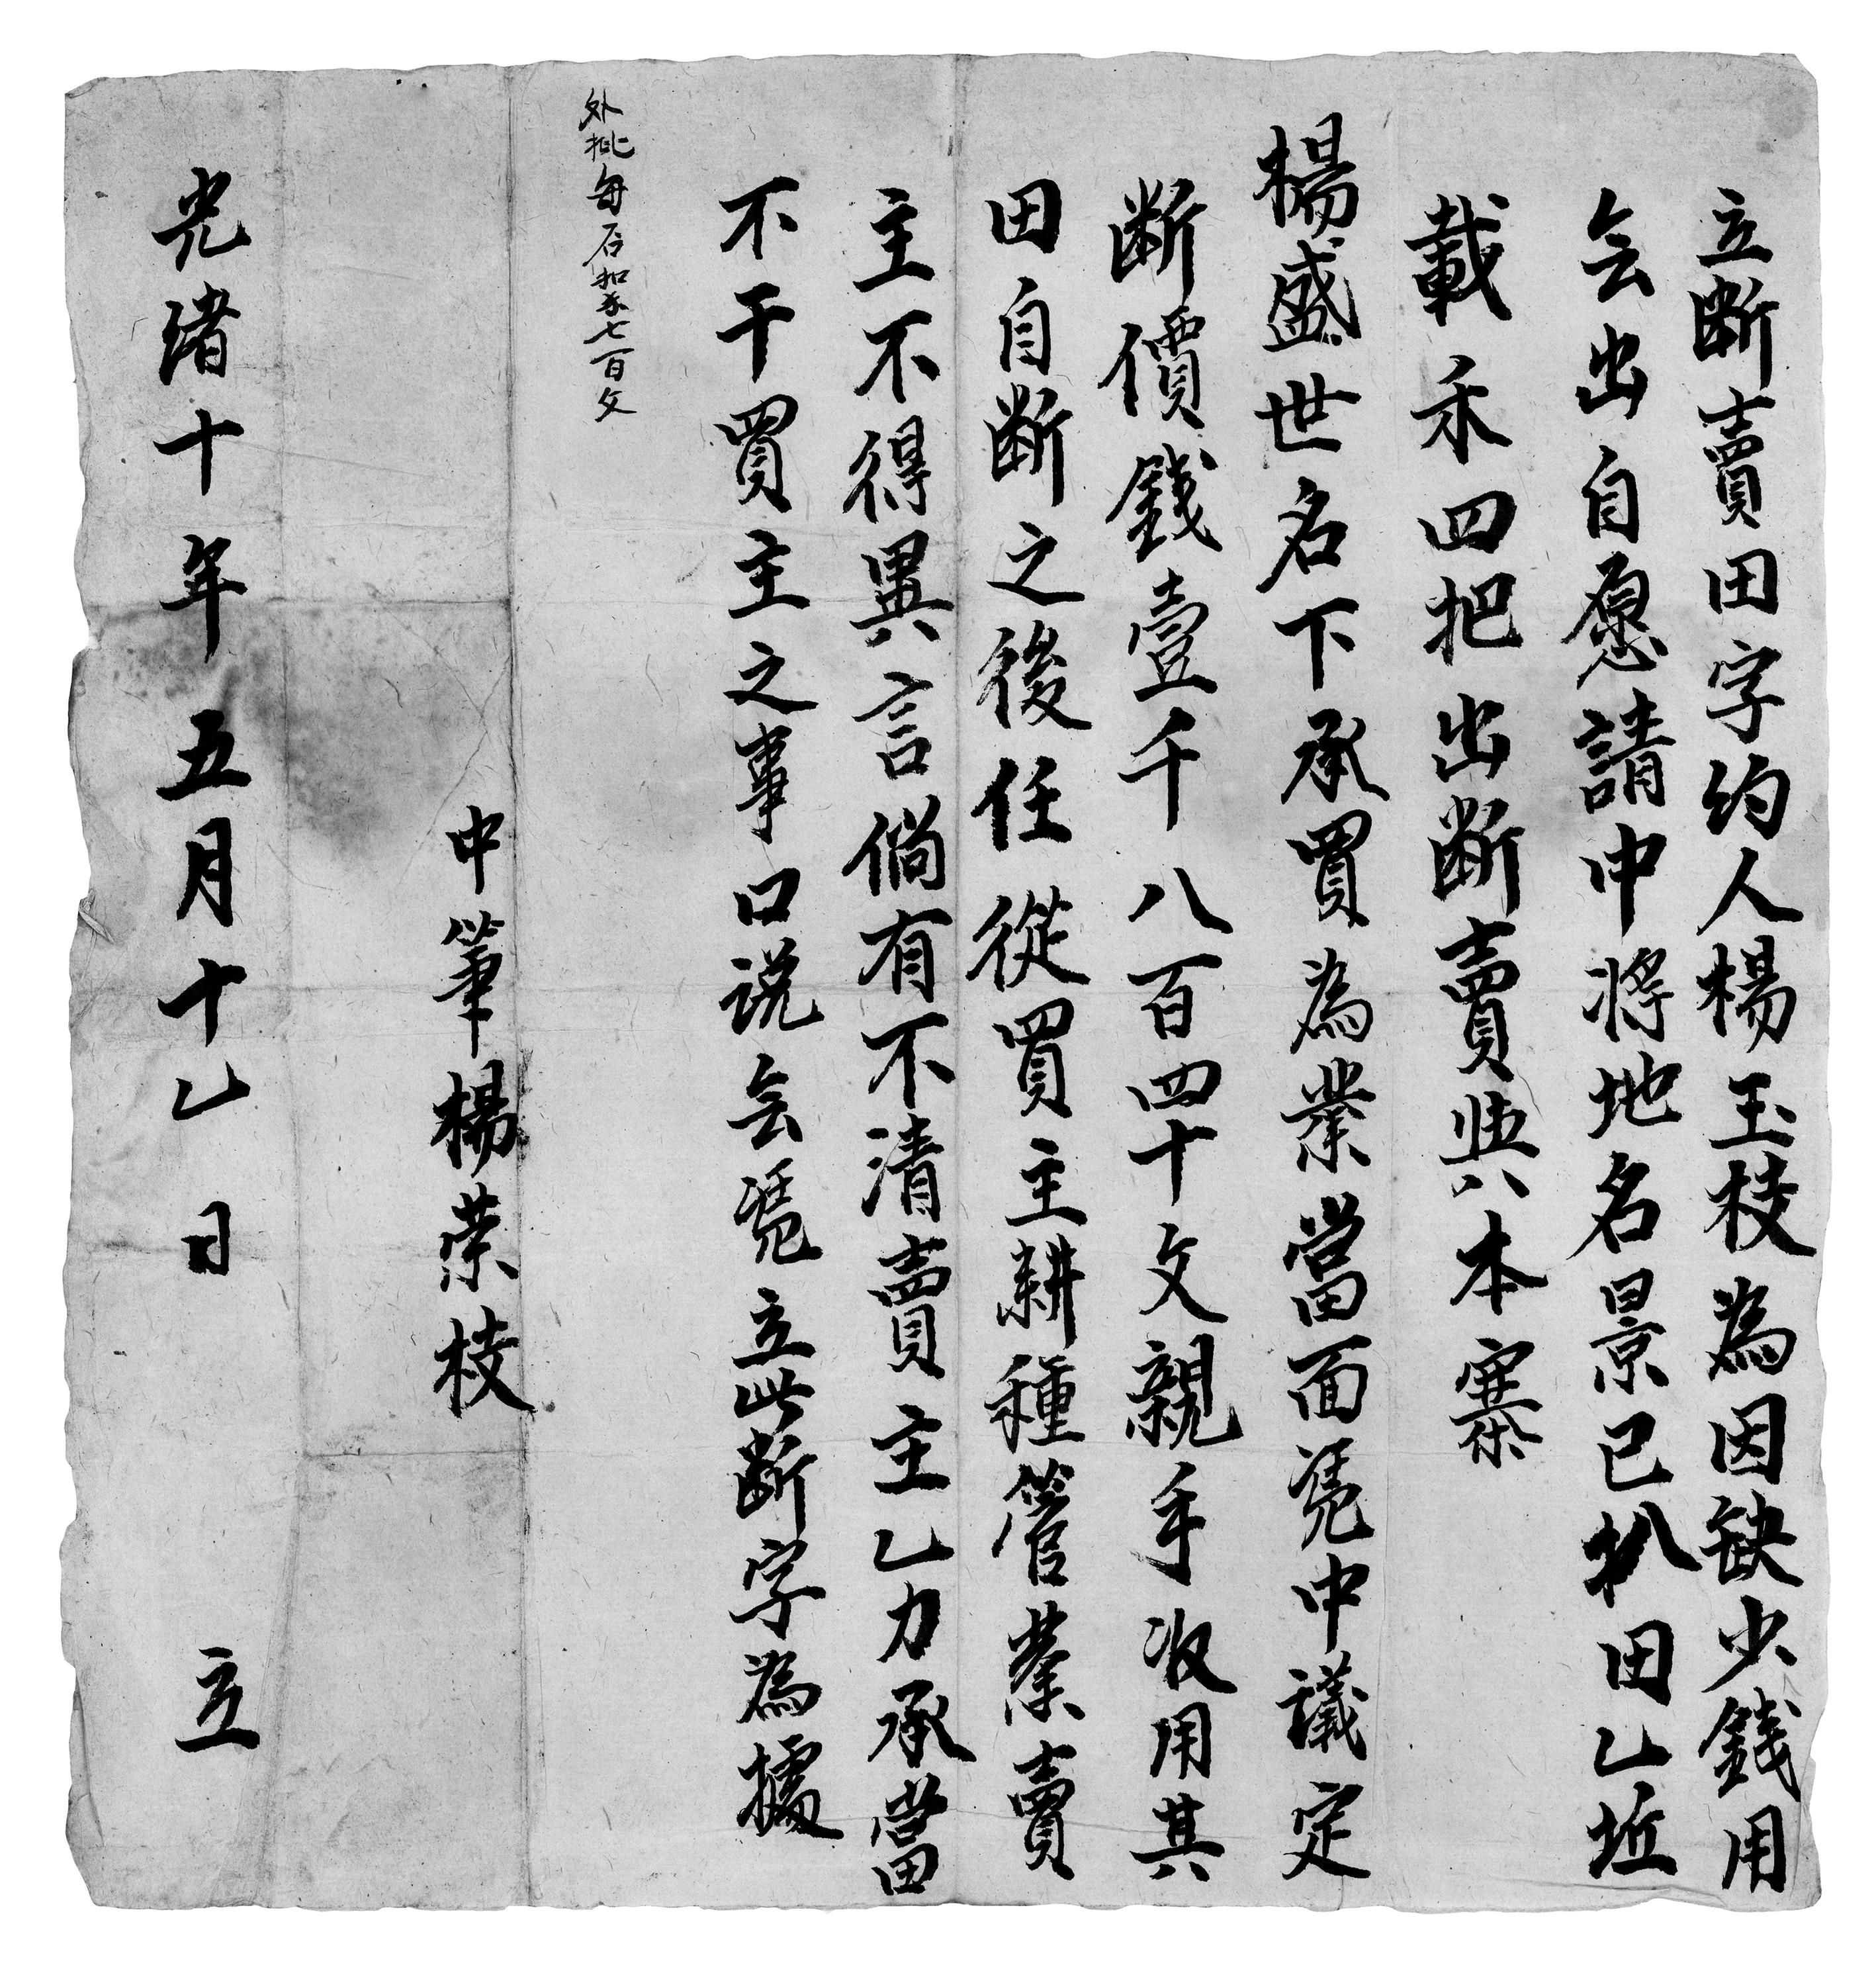 立断賣田字約人楊玉枝為因缺少錢用
会出自愿請中将地名景已扒田乚坵
載禾四把出断賣與本寨
楊盛世名下承買為業當面凴中議定
断價錢壹千八百四十文親手收用其
田自断之後任從買主耕種管業賣
主不得異言倘有不清賣主乚力承當
不干買主之事口说会凴立此断字為據
外批每石扣禾七百文
中筆楊荣枝
光绪十年五月十乚日立